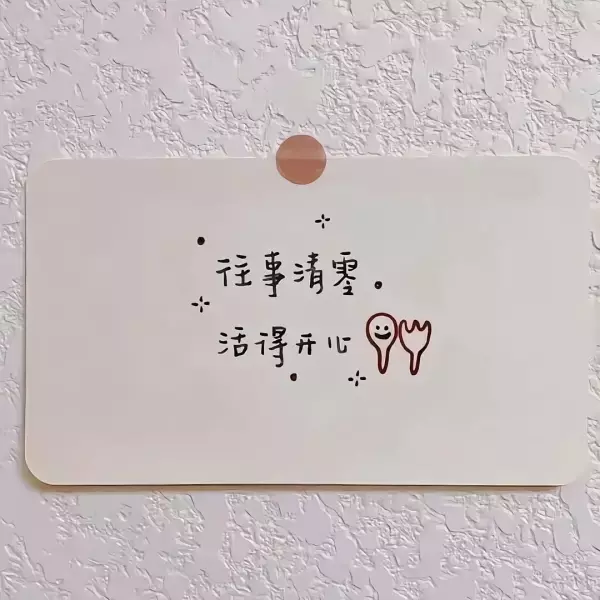 往事清零。
活得开心